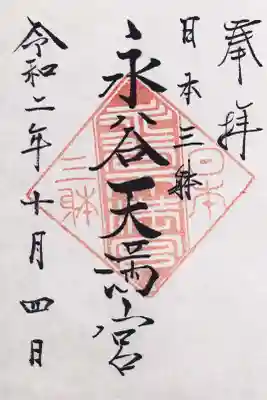 奉拝
日本三躰
永谷天満宮
令和二年十月四日
日本
三躰